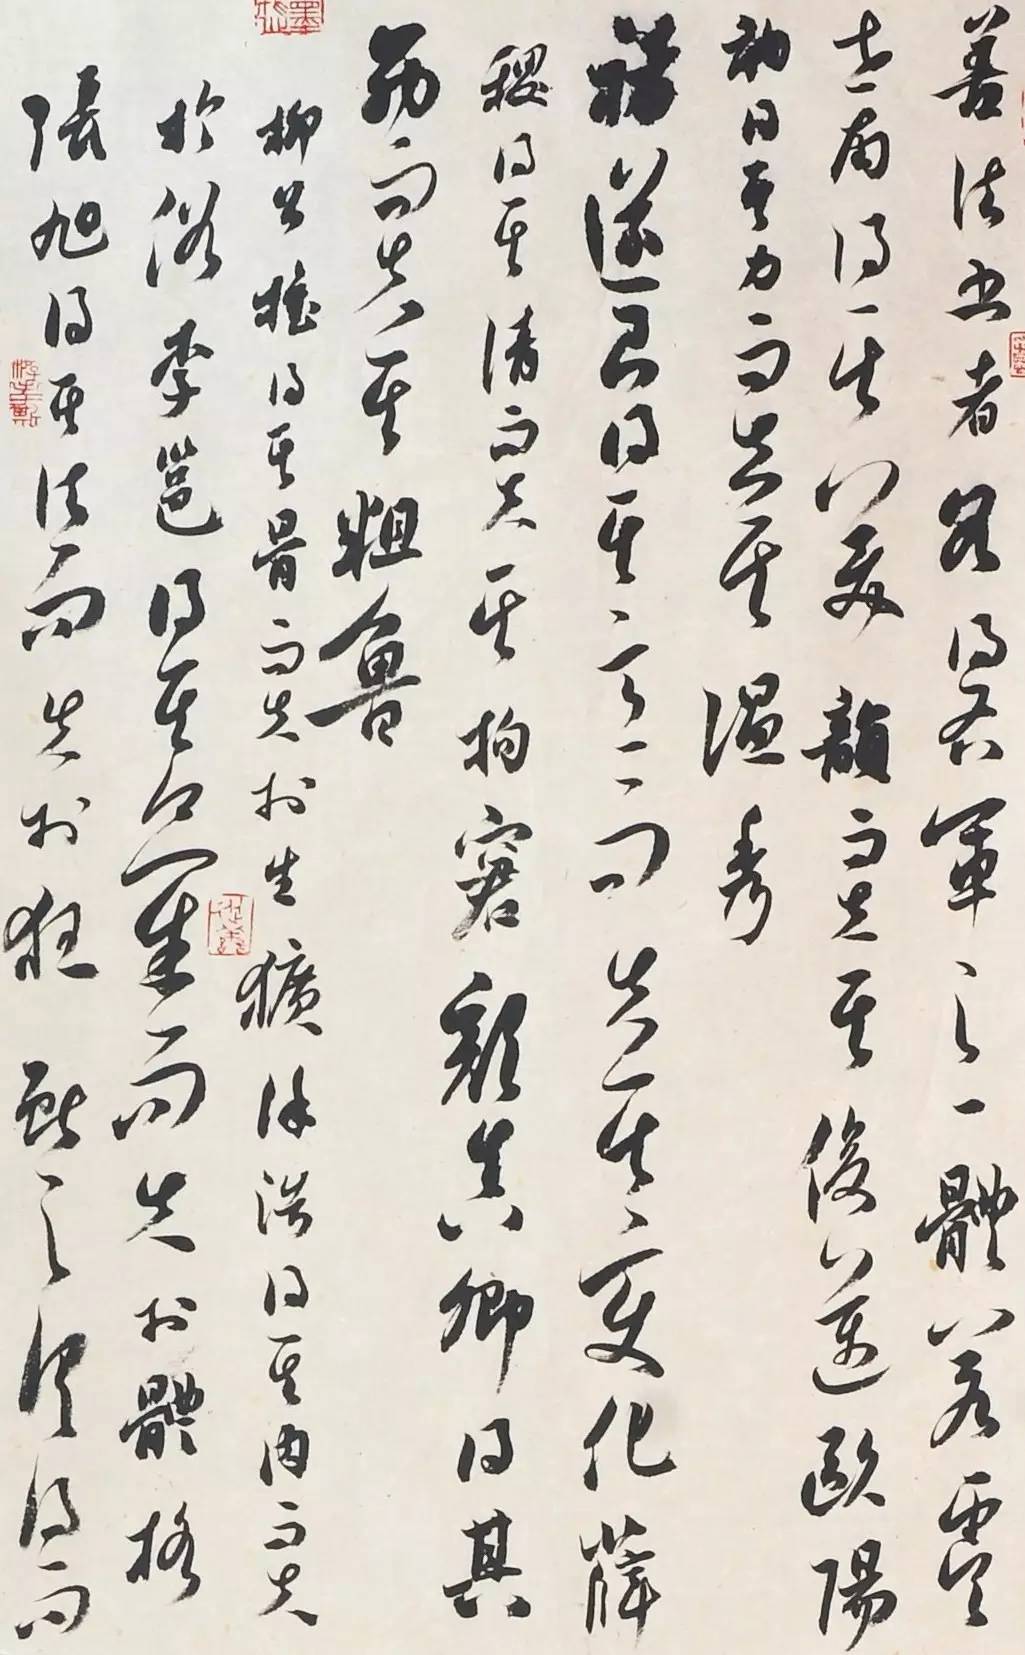 善法书者各得右军之一體若虞
世南得其美韻而失其俊邁歐陽
詢得其力而失其温秀
褚遂良得其意而失其變化薛
稷得其清而失其拘窘颜真卿得其
筋而失其粗魯
柳公權得其骨而失於生獷徐浩得其肉而失
於俗李邕得其氣而失於體格
張旭得其法而失於狂獻之俱得而